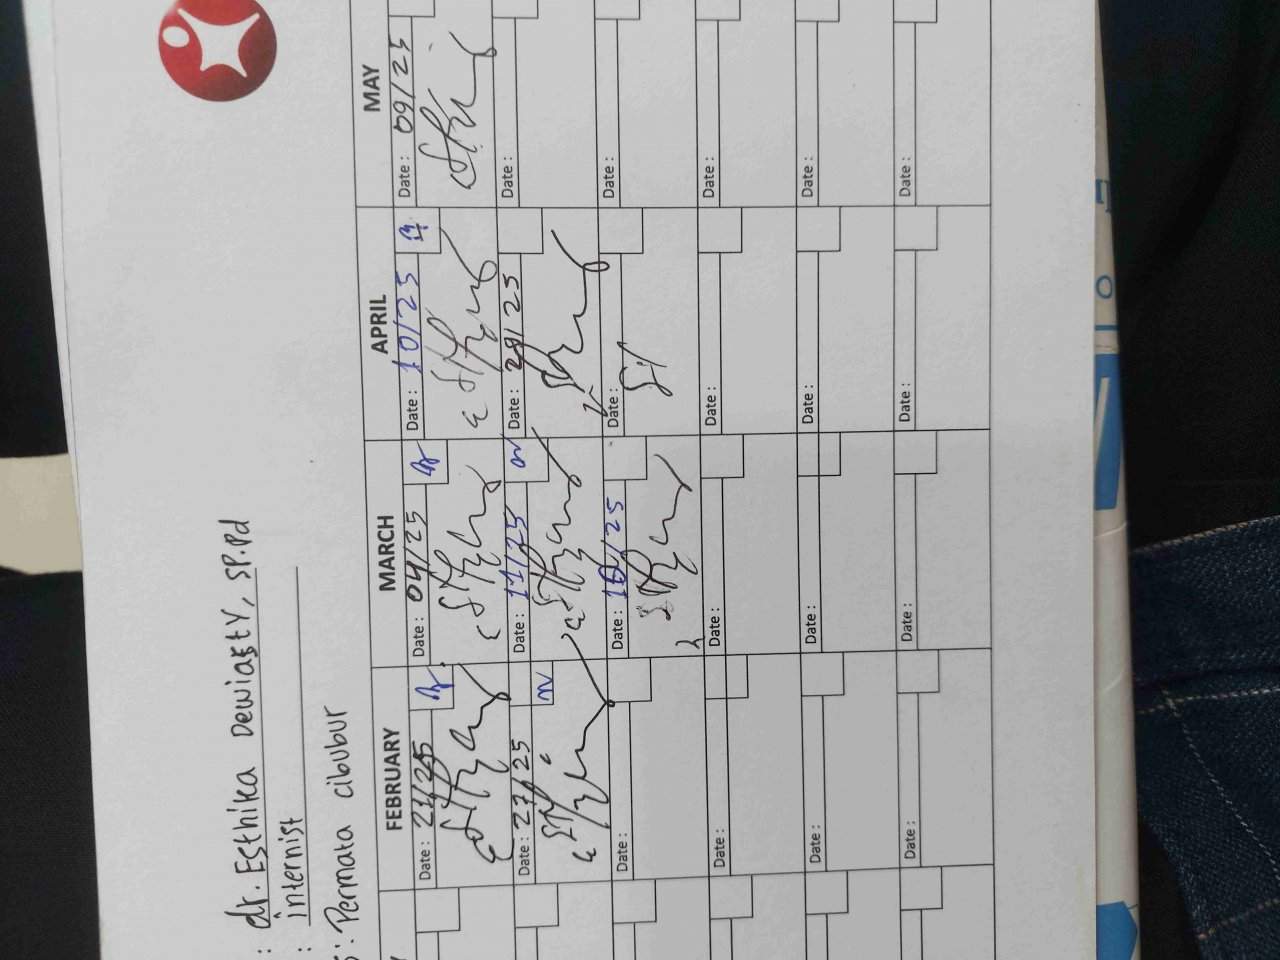 : dr. Esthika Dewiasty, SP.Pd
: internist
S : Permata cibubur
FEBRUARY MARCH APRIL MAY
Date : 21/25 Date : 04/25 Date : 10/25 Date : 09/25
Date : 27/25 Date : 11/25 Date : 29/25 Date :
Date : Date : /25 Date : Date :
Date : Date : Date : Date :
Date : Date : Date : Date :
Date : Date : Date : Date :